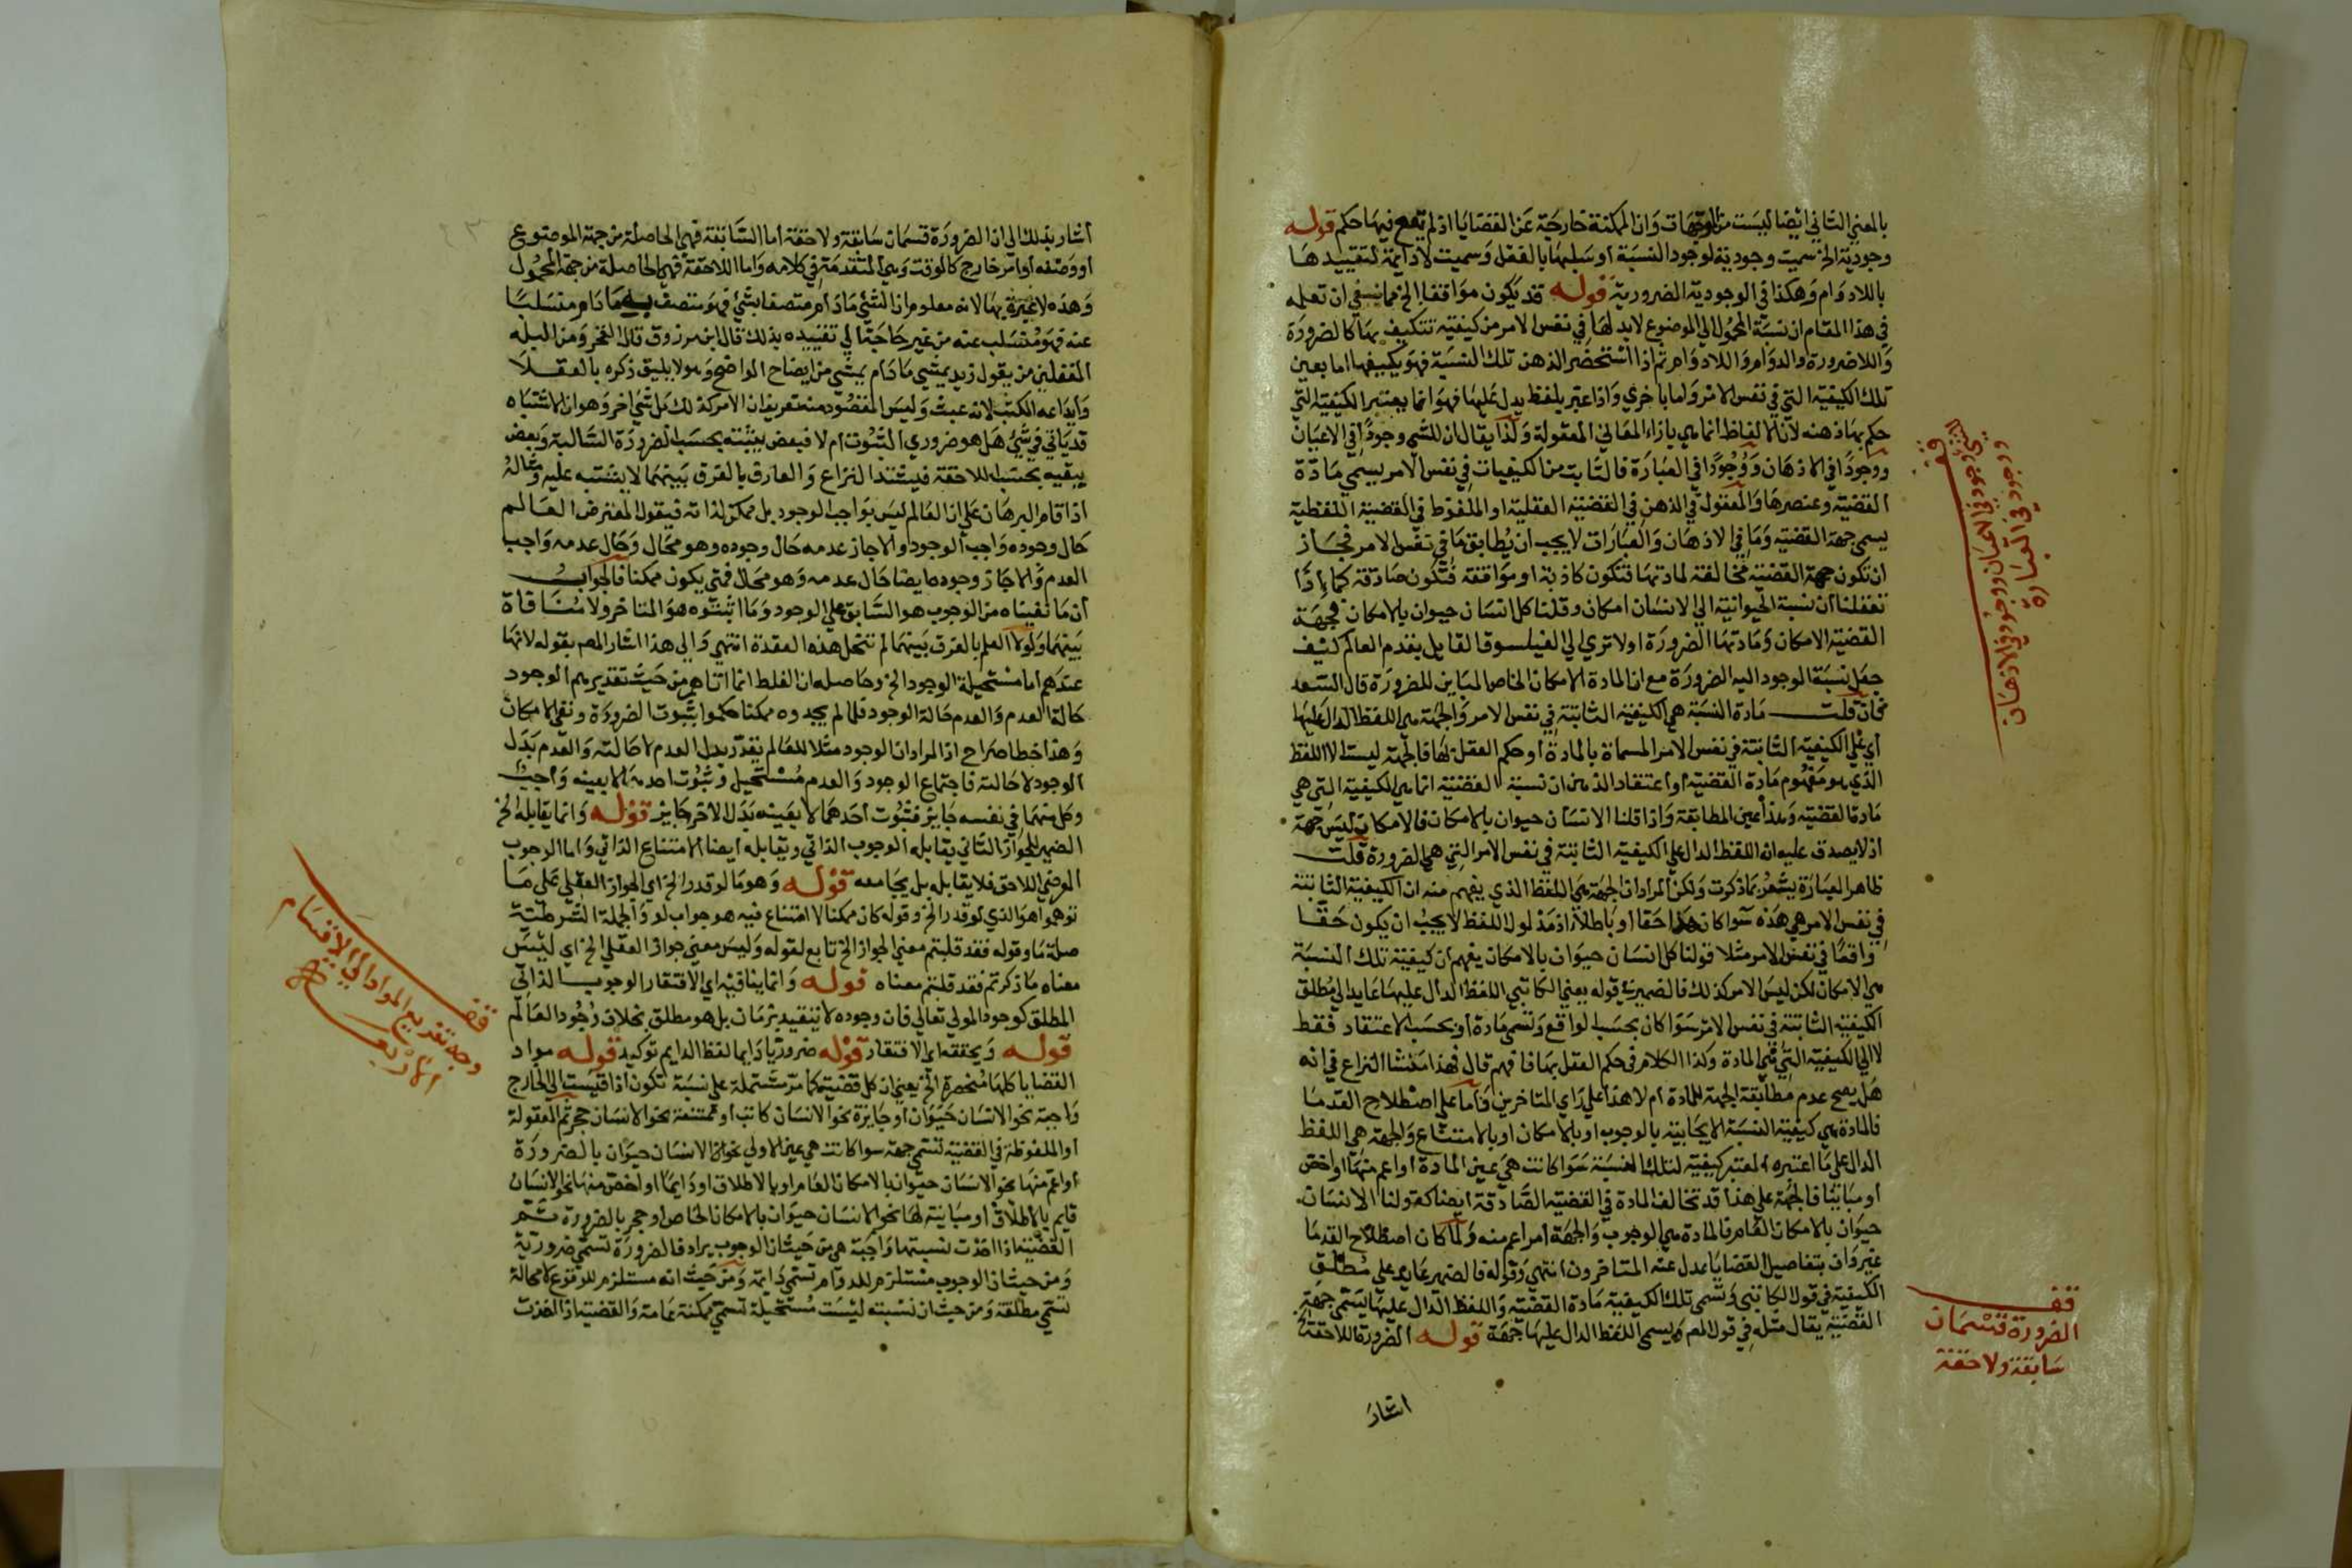 بالمعني الثاني ايضا ليست من الموجهات وان الممكنة خارجة عن القضايا اذ لم يقع فيها حكم قوله
وجودية الخ سميت وجودية لوجود النسبة أو سلبها بالفعل وسميت لادائمة لتقييدها
باللادوام وهكذا في الوجودية الضرورية قوله قد يكون موافقا الخ مما ينبغي ان تعلم
في هذا المقام ان نسبة المحمول الي الموضوع لابد لها في نفس الامر من كيفية تتكيف بها كالضرورة
واللاضرورة والدوام واللادوام ثم اذا استحضر الذهن تلك النسبة فهو يكيفها اما بعين
تلك الكيفية التي في نفس الامر واما باخري واذا عبر بلفظ يدل عليها فهو انما يعتبر الكيفية التي
حكم بها ذهنه لان الالفاظ انما هي بازاء المعاني المعقولة ولذا يقال ان للشي وجودا في الاعيان
ووجودا في الاذهان ووجودا في العبارة فالثابت من الكيفيات في نفس الامر يسمي مادة
القضية وعنصرها والمعقول في الذهن في القضية العقلية او الملفوظ في القضية اللفظية
يسمي جهة القضية وما في الاذهان والعبارات لا يجب ان يطابق ما في نفس الامر فجاز
ان تكون جهة القضية مخالفة لمادتها فتكون كاذبة او موافقة فتكون صادقة كما اذا
تعقلنا ان نسبة الحيوانية الي الانسان امكان وقلنا كل انسان حيوان بالامكان فجهة
القضية الامكان ومادتها الضرورة اولا تري الي الفيلسوف القايل بقدم العالم كيف
جعل نسبة الوجود اليه الضرورة مع ان المادة الامكان الخاص المباين للضرورة قال السعد
فان قلت مادة النسبة هي الكيفية الثابتة في نفس الامر والجهة هي اللفظ الدال عليها
أي علي الكيفية الثابتة في نفس الامر المسماة بالمادة أو حكم العقل بها فالجهة ليست الا اللفظ
الذي هو مفهوم مادة القضية أو اعتقاد الذهن ان نسبة القضية انما هي الكيفية التي هي
مادة القضية وهذا عين المطابقة واذا قلنا الانسان حيوان بالامكان فالامكان ليس جهة
اذ لا يصدق عليه انه اللفظ الدال علي الكيفية الثابتة في نفس الامر التي هي الضرورة قلت
ظاهر العبارة يشعر بما ذكرت ولكن المراد ان الجهة هي اللفظ الذي يفهم منه ان الكيفية الثابتة
في نفس الامر هي هذه سوا كان هذا حقا أو باطلا اذ مدلول اللفظ لا يجب ان يكون حقا
واقعا في نفس الامر مثلا قولنا كل انسان حيوان بالامكان يفهم ان كيفية تلك النسبة
هي الامكان لكن ليس الامر كذلك فالضمير في قوله يعني الكاتبي اللفظ الدال عليها عايد الي مطلق
الكيفية الثابتة في نفس الامر سوا كان بحسب الواقع وتسمي مادة أو بحسب الاعتقاد فقط
لا الي الكيفية التي هي المادة وكذا الكلام في حكم العقل بها فافهم قال فهذا منشا النزاع في انه
هل يصح عدم مطابقة الجهة للمادة أم لا هذا علي راي المتاخرين واما علي اصطلاح القدما
فالمادة هي كيفية النسبة الايجابية بالوجوب او بالامكان او بالامتناع والجهة هي اللفظ
الدال علي ما اعتبره المعتبر كيفية لتلك النسبة سوا كانت هي عين المادة او اعم منها او اخص
او مباينا فالجهة علي هذا قد تخالف المادة في القضية الصادقة ايضا كقولنا الانسان
حيوان بالامكان العام فالمادة هي الوجوب والجهة امر اعم منه ولما كان اصطلاح القدما
غير واف بتفاصيل القضايا عدل عنه المتاخرون انتهي وقوله فالضمير عايد علي مطلق
الكيفية في قول الكاتبي وتسمي تلك الكيفية مادة القضية واللفظ الدال عليها يسمي جهة
القضية يقال مثله في قول المص ويسمي اللفظ الدال عليها جهة قوله الضرورة اللاحقة الخ
اشار
قف
للشي وجود في الاعيان ووجود في الاذهان
ووجود في العبارة
قف
الضرورة قسمان
سابقة ولاحقة
أشار بذلك الي ان الضرورة قسمان سابقة ولاحقة أما السابقة فهي الحاصلة من جهة الموضوع
أو وصفه أو امر خارج كالوقت وهي المتقدمة في كلامه واما اللاحقة فهي الحاصلة من جهة المحمول
وهذه لا عبرة بها لانه معلوم ان الشي مادام متصفا بشي فهو متصف به وما دام منسلبا
عنه فهو منسلب عنه من غير حاجة الي تقييده بذلك قال ابن مرزوق قال الفخر ومن البله
المغفلين من يقول زيد يمشي مادام يمشي من ايضاح الواضح وهو لا يليق ذكره بالعقلا
وايداعه الكتب لانه عبث وليس المقصود منه تعريف ان الامر كذلك بل شي اخر وهو ان الاشتباه
قد ياتي في شي هل هو ضروري الثبوت ام لا فبعض يثبته بحسب الضرورة السالبة وبعض
ينفيه بحسب اللاحقة فيشتد النزاع والعارف بالفرق بينهما لا يشتبه عليه ومثاله
اذا قام البرهان علي ان العالم ليس بواجب الوجود بل ممكن لذاته فيقول المعترض العالم
حال وجوده واجب الوجود والا جاز عدمه حال وجوده وهو محال وحال عدمه واجب
العدم والا جاز وجوده ايضا حال عدمه وهو محال فمتي يكون ممكنا فالجواب
أن ما نفيناه من الوجوب هو السابق علي الوجود وما اثبتوه هو المتاخر ولا منافاة
بينهما ولولا العلم بالفرق بينهما لم تنحل هذه العقدة انتهي والي هذا اشار المص بقوله لانها
عندهم اما مستحيلة الوجود الخ وحاصله ان الغلط انما اتاهم من حيث تقديرهم الوجود
حالة العدم والعدم حالة الوجود فلما لم يجدوه ممكنا حكموا بثبوت الضرورة ونفي الامكان
وهذا خطا صراح اذ المراد ان الوجود مثلا للعالم يقدر بدل العدم لا حالته والعدم بدل
الوجود لا حالته فاجتماع الوجود والعدم مستحيل وثبوت احدهما لا بعينه واجب
وكل منهما في نفسه جايز فثبوت أحدهما لا بعينه بدل الاخر جايز قوله وانما يقابله الخ
الضمير للجواز الذاتي يقابله الوجوب الذاتي ويقابله ايضا الامتناع الذاتي واما الوجوب
العرضي اللاحق فلا يقابله بل يجامعه قوله وهو ما لو قدر الخ اي الجواز العقلي علي ما
توهموا هو الذي لو قدر الخ وقوله كان ممكنا لا امتناع فيه هو جواب لو والجملة الشرطية
صلة ما وقوله فقد قلبتم معني الجواز الخ تابع لقوله وليس معني جواز العقلي الخ اي ليس
معناه ما ذكرتم فقد قلبتم معناه قوله وانما ينافيه اي الافتقار الوجوب الذاتي
المطلق كوجود المولي تعالي فان وجوده لا يتقيد بزمان بل هو مطلق بخلاف وجود العالم
قوله ويحققه اي الافتقار قوله ضروريا دايما لفظ الدايم توكيد قوله مواد
القضايا كلها منحصرة الخ يعني ان كل قضية كما مر مشتملة علي نسبة تكون اذا قيست الي الخارج
واجبة نحو الانسان حيوان أو جايزة نحو الانسان كاتب او ممتنعة نحو الانسان حجر ثم المعقولة
او الملفوظة في القضية تسمي جهة سوا كانت هي عين الاولي نحو الانسان حيوان بالضرورة
أو اعم منها نحو الانسان حيوان بالامكان العام او بالاطلاق او دايما او اخص منها نحو الانسان
قايم بالاطلاق أو مباينة لها نحو الانسان حيوان بالامكان الخاص أو حجر بالضرورة ثم
القضية اذا اخذت نسبتها واجبة هي من حيث ان الوجوب يرادف الضرورة تسمي ضرورية
ومن حيث ان الوجوب مستلزم للدوام تسمي دايمة ومن حيث انه مستلزم للوقوع لا محالة
تسمي مطلقة ومن حيث ان نسبته ليست مستحيلة تسمي ممكنة عامة والقضية اذا اخذت
قف
وجه تقديم المواد الي الاقسام
الاربعة